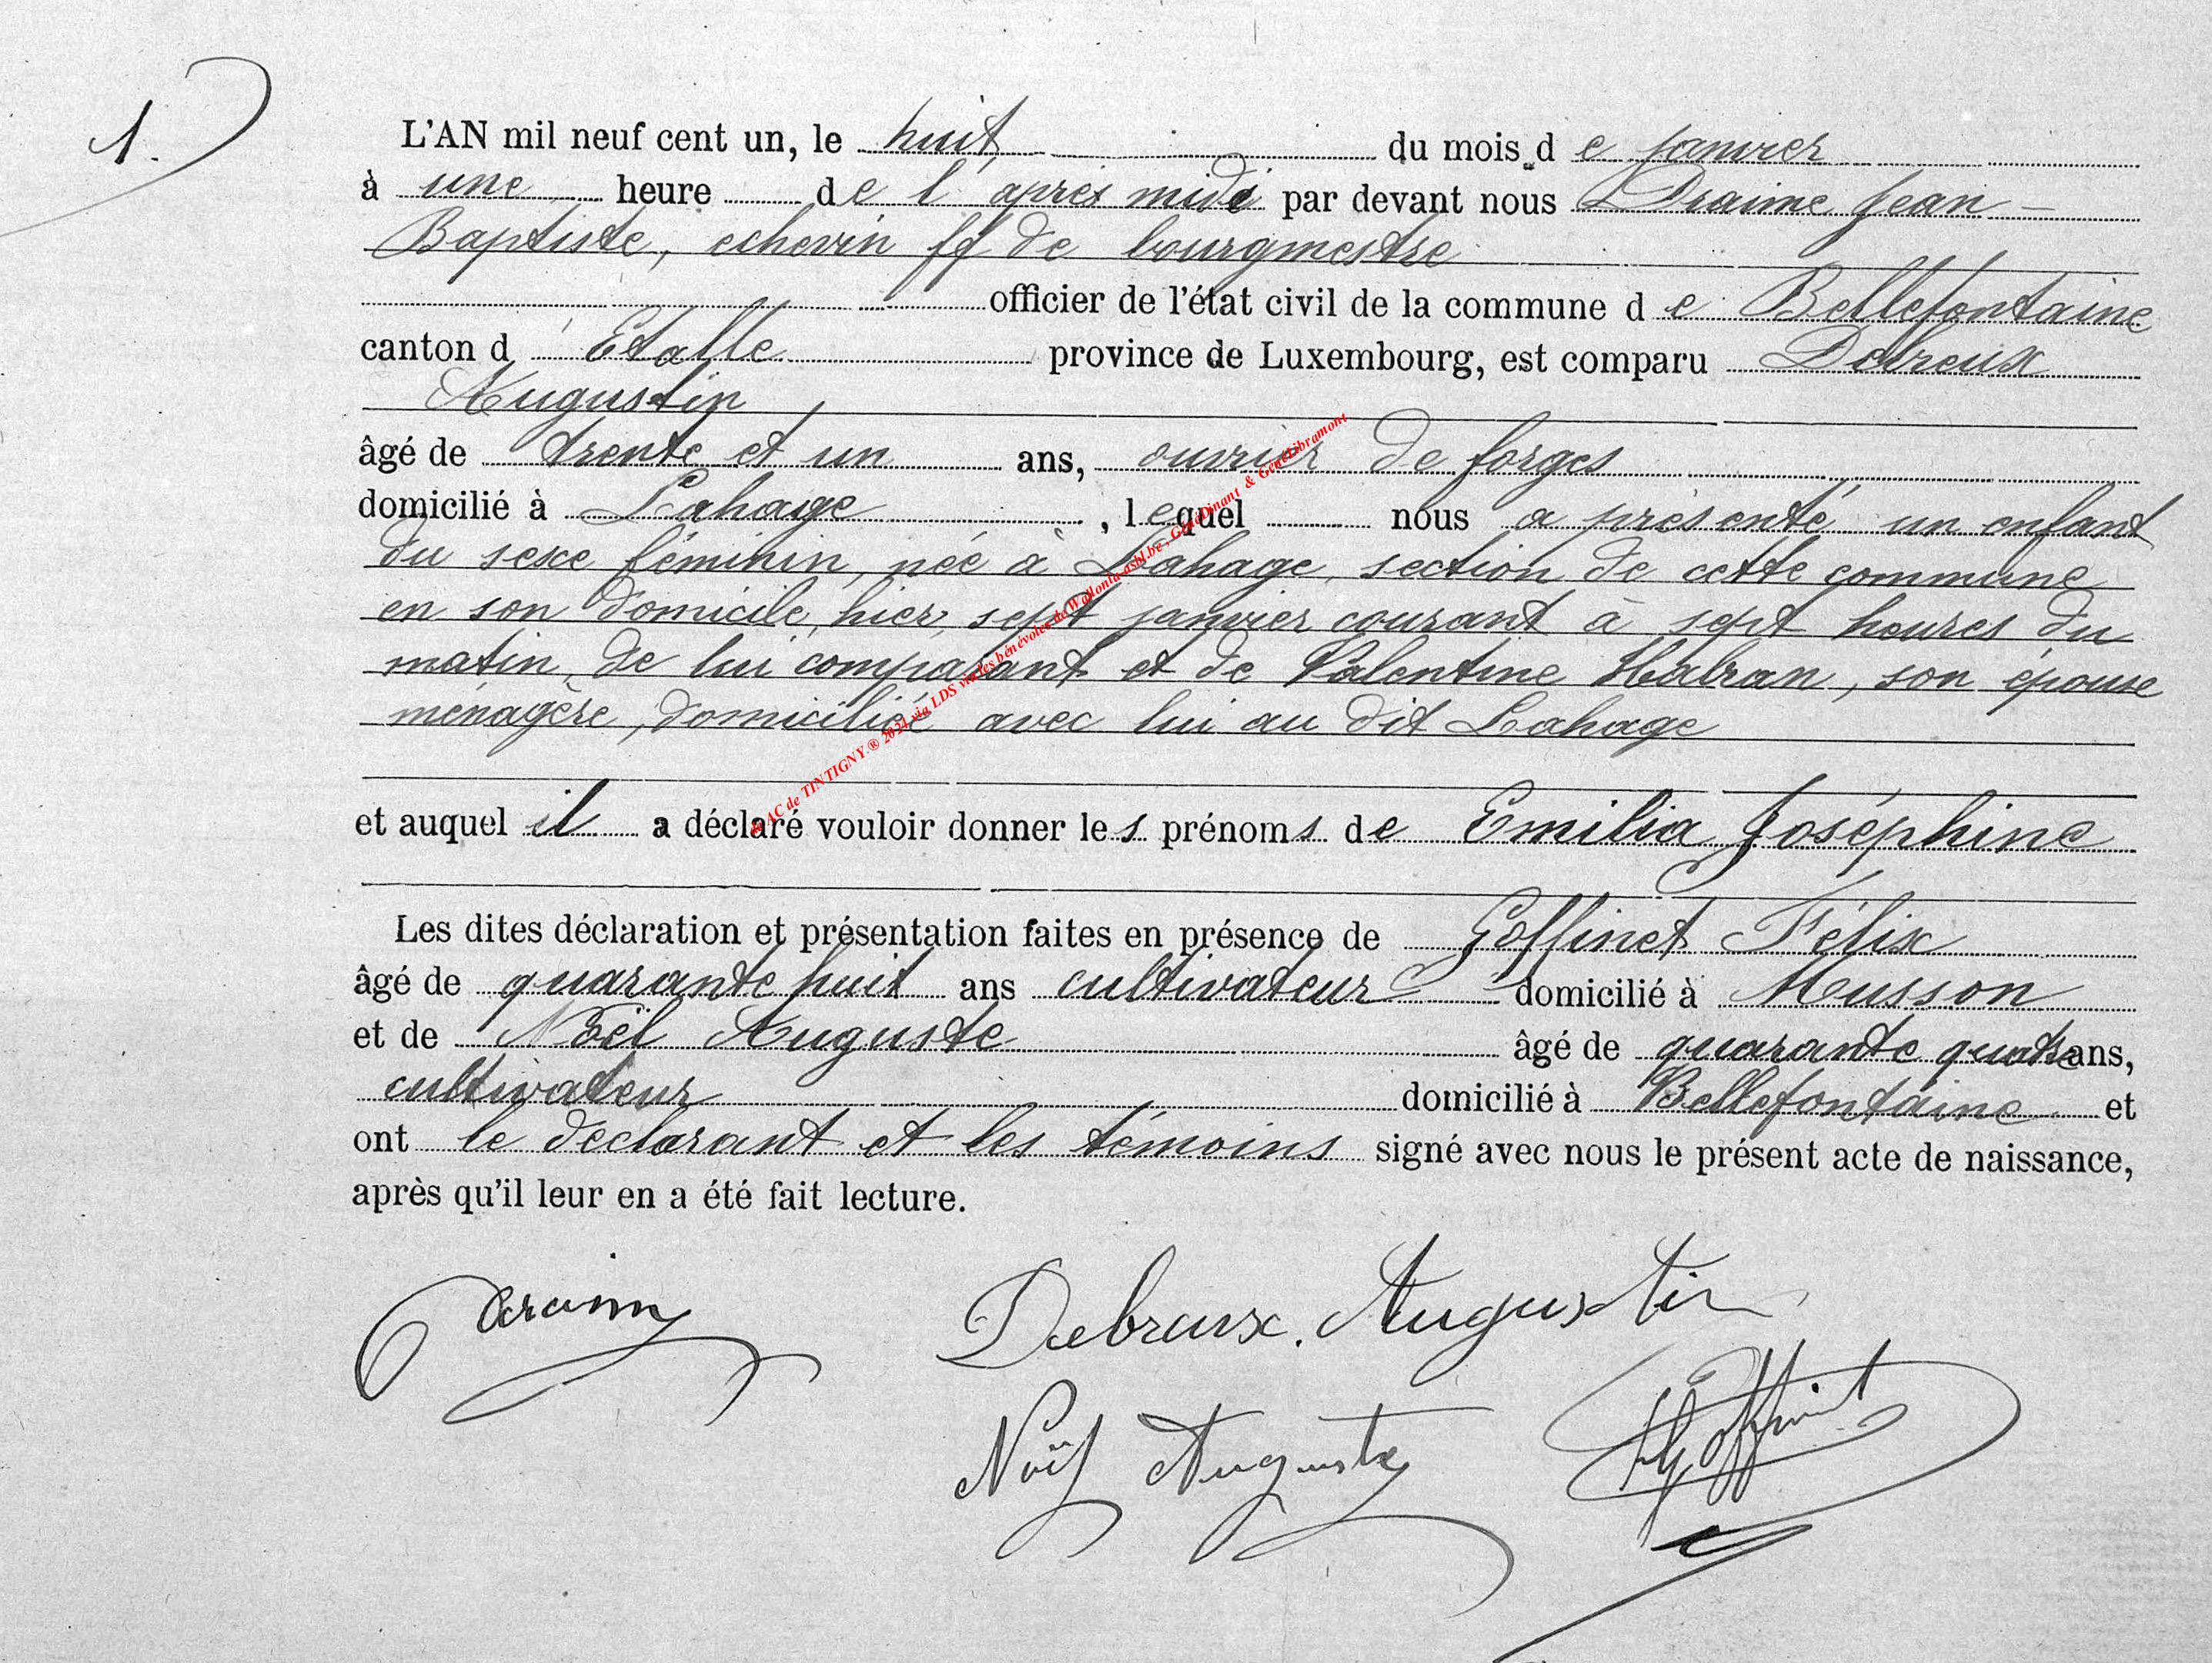 1.
L'AN mil neuf cent un, le huit du mois de janvier
à une heure de l'après midi par devant nous Draime Jean-
Baptiste, echevin ff de bourgmestre
officier de l'état civil de la commune de Bellefontaine
canton d'Etalle province de Luxembourg, est comparu Debreux
Augustin
âgé de trente et un ans, ouvrier de forges
domicilié à Lahage, lequel nous a présenté un enfant
du sexe féminin, née à Lahage, section de cette commune
en son domicile, hier, sept janvier courant à sept heures du
matin, de lui comparant et de Valentine Habran, son épouse
ménagère, domiciliée avec lui au dit Lahage
et auquel il a déclaré vouloir donner les prénoms de Emilia Joséphine
Les dites déclaration et présentation faites en présence de Goffinet Félix
âgé de quarante huit ans cultivateur domicilié à Musson
et de Noël Auguste âgé de quarante quatre ans,
cultivateur domicilié à Bellefontaine et
ont le déclarant et les témoins signé avec nous le présent acte de naissance,
après qu'il leur en a été fait lecture.
Debreux. Augustin
Noël Auguste
Goffinet
AC de TINTIGNY ® 2024 via LDS via les bénévoles de Wallonia-asbl.be, GénéDinant & GénéLibramont